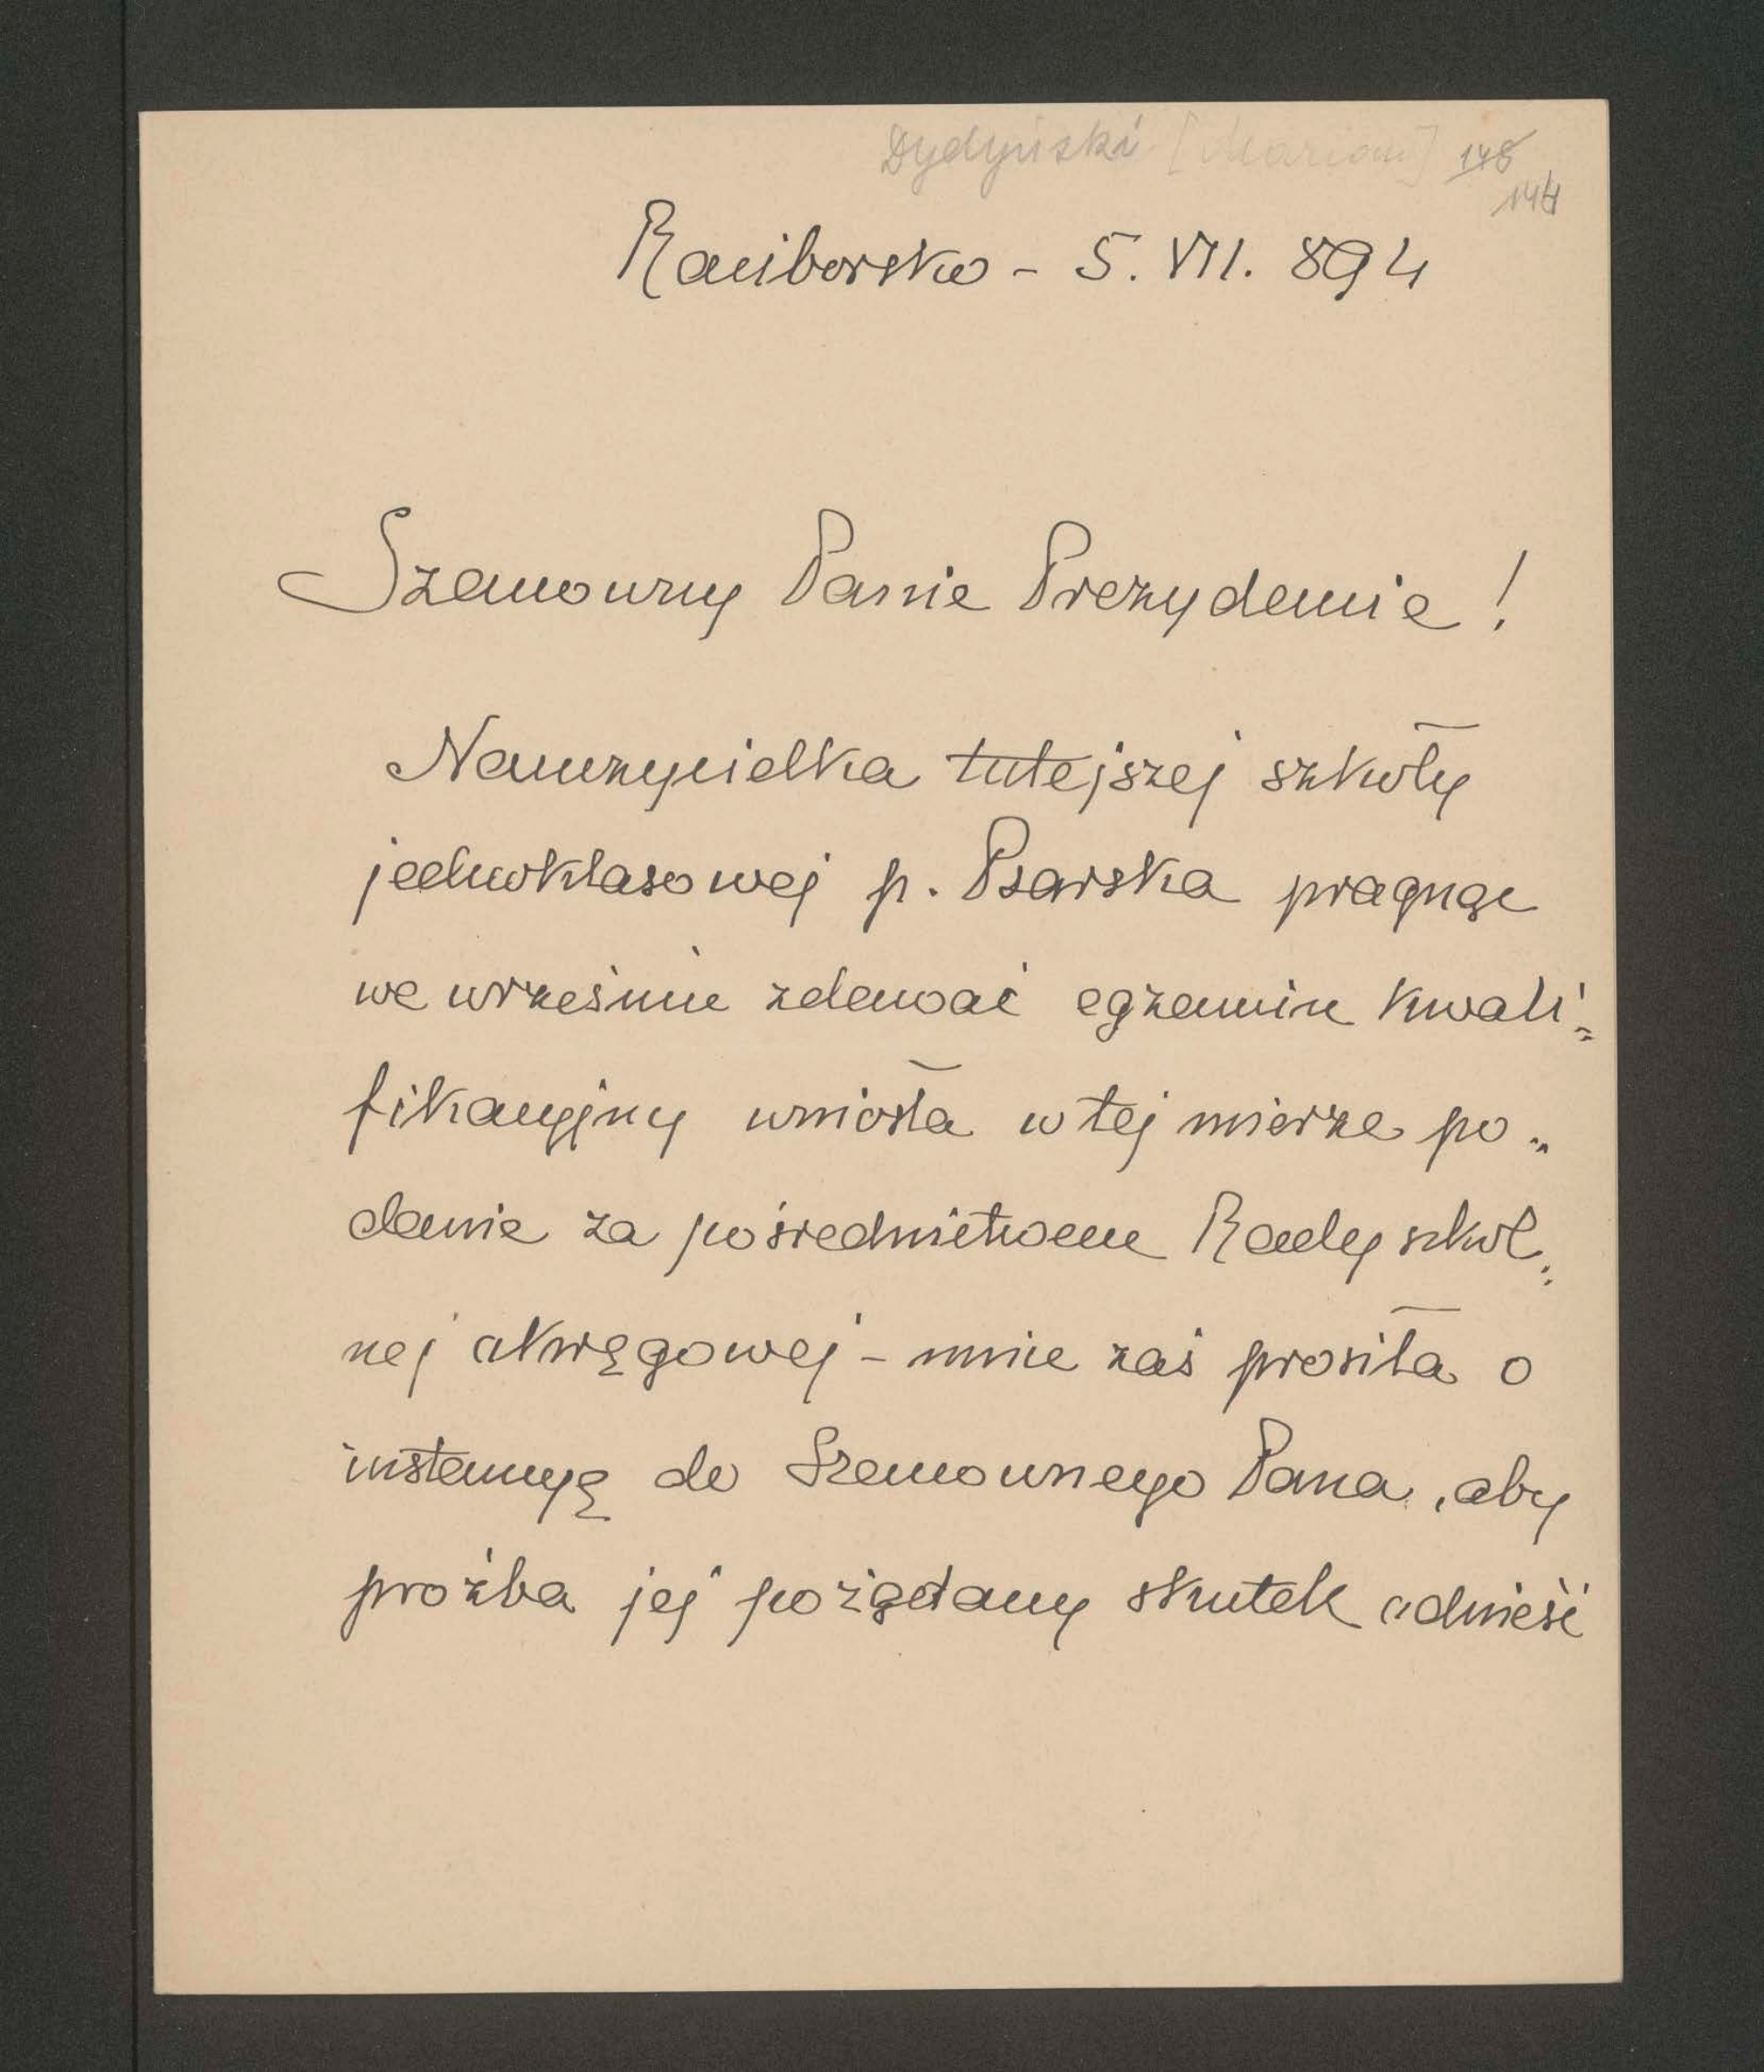 Dydyński [Marian] 148
144
Raciborsko - 5. VII. 894
Szanowny Panie Prezydencie!
Nauczycielka tutejszej szkoły
jednoklasowej p. Psarska pragnąc
we wrześniu zdawać egzamin kwali=
fikacyjny wniosła w tej mierze po„
danie za pośrednictwem Rady szkol„
nej okręgowej - mnie zaś prosiła o
instancyę do Szanownego Pana, aby
prożba jej pożądany skutek odnieść